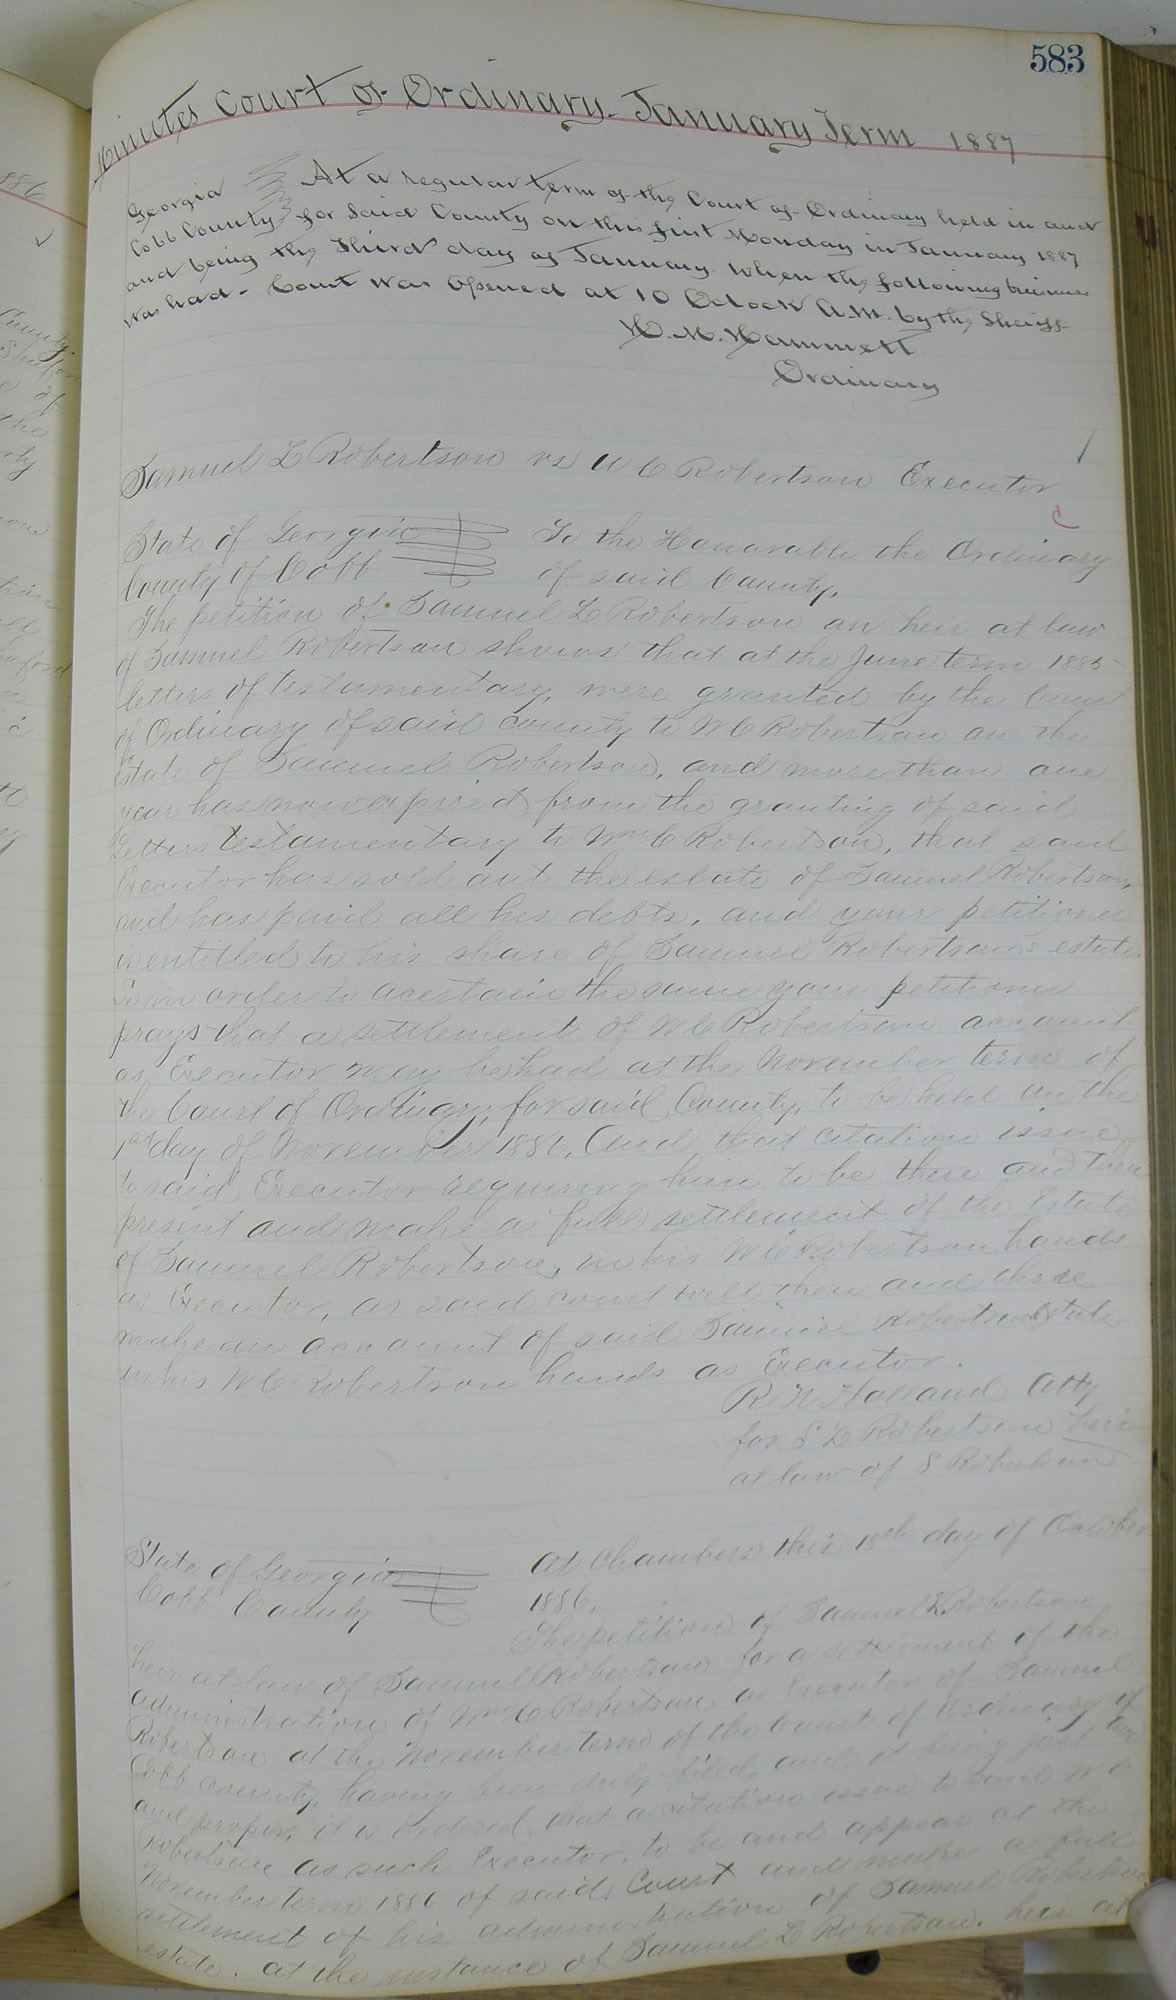 583
Minutes Court of Ordinary January Term 1887
Georgia At a regular term of the Court of Ordinary held in and
Cobb County for Said County on this first Monday in January 1887
and being the Third day of January. When the following business
was had - Court was Opened at 10 Oclock A.M. by the Sheriff
H. M. Hammett
Ordinary
Samuel L Robertson vs W C Robertson Executor
State of Georgia To the Honarable the Ordinary
County of Cobb of said County.
The petition of Samuel L Robertson an heir at law
of Samuel Robertson shows that at the June term 1885
letters of testamentary, were granted by the Court
of Ordinary of said county to W C Robertson on the
estate of Samuel Robertson, and more than one
year has now expired from the granting of said
Letters testamentary to Wm C Robertson, that said
Executor has sold out the estate of Samuel Robertson,
and has paid all his debts, and your petitioner
is entitled to his share of Samuel Robertson's estate.
So in order to acertain the same your petitioner
prays that a settlement of W C Robertson account
as Executor may be had at the November term of
the Court of Ordinary, for said County, to be held on the
1st day of November 1886, And that citation issue
to said Executor requiring him to be there and then
present and make a full settlement of the Estate
of Samuel Robertson, in his W C Robertson hands
as Executor, as said court will then and there
make an account of said Samuel Robertson Estate
in his W C Robertson hands as Executor.
R N Holland Atty
for S L Robertson heir
at law of S Robertson
State of Georgia At Chambers this 18th day of October
Cobb County 1886.
The petition of Samuel L Robertson
heir at law of Samuel Robertson for a settlement of the
administration of Wm C Robertson as Executor of Samuel
Robertson at the November term of the Court of Ordinary of
Cobb county, having been duly filed, and it being just
and proper, it is ordered that a citation issue to said W C
Robertson as such Executor, to be and appear at the
November term 1886 of said Court and make a full
settlement of his administration of Samuel Robertson
estate. at the instance of Samuel L Robertson. heir at